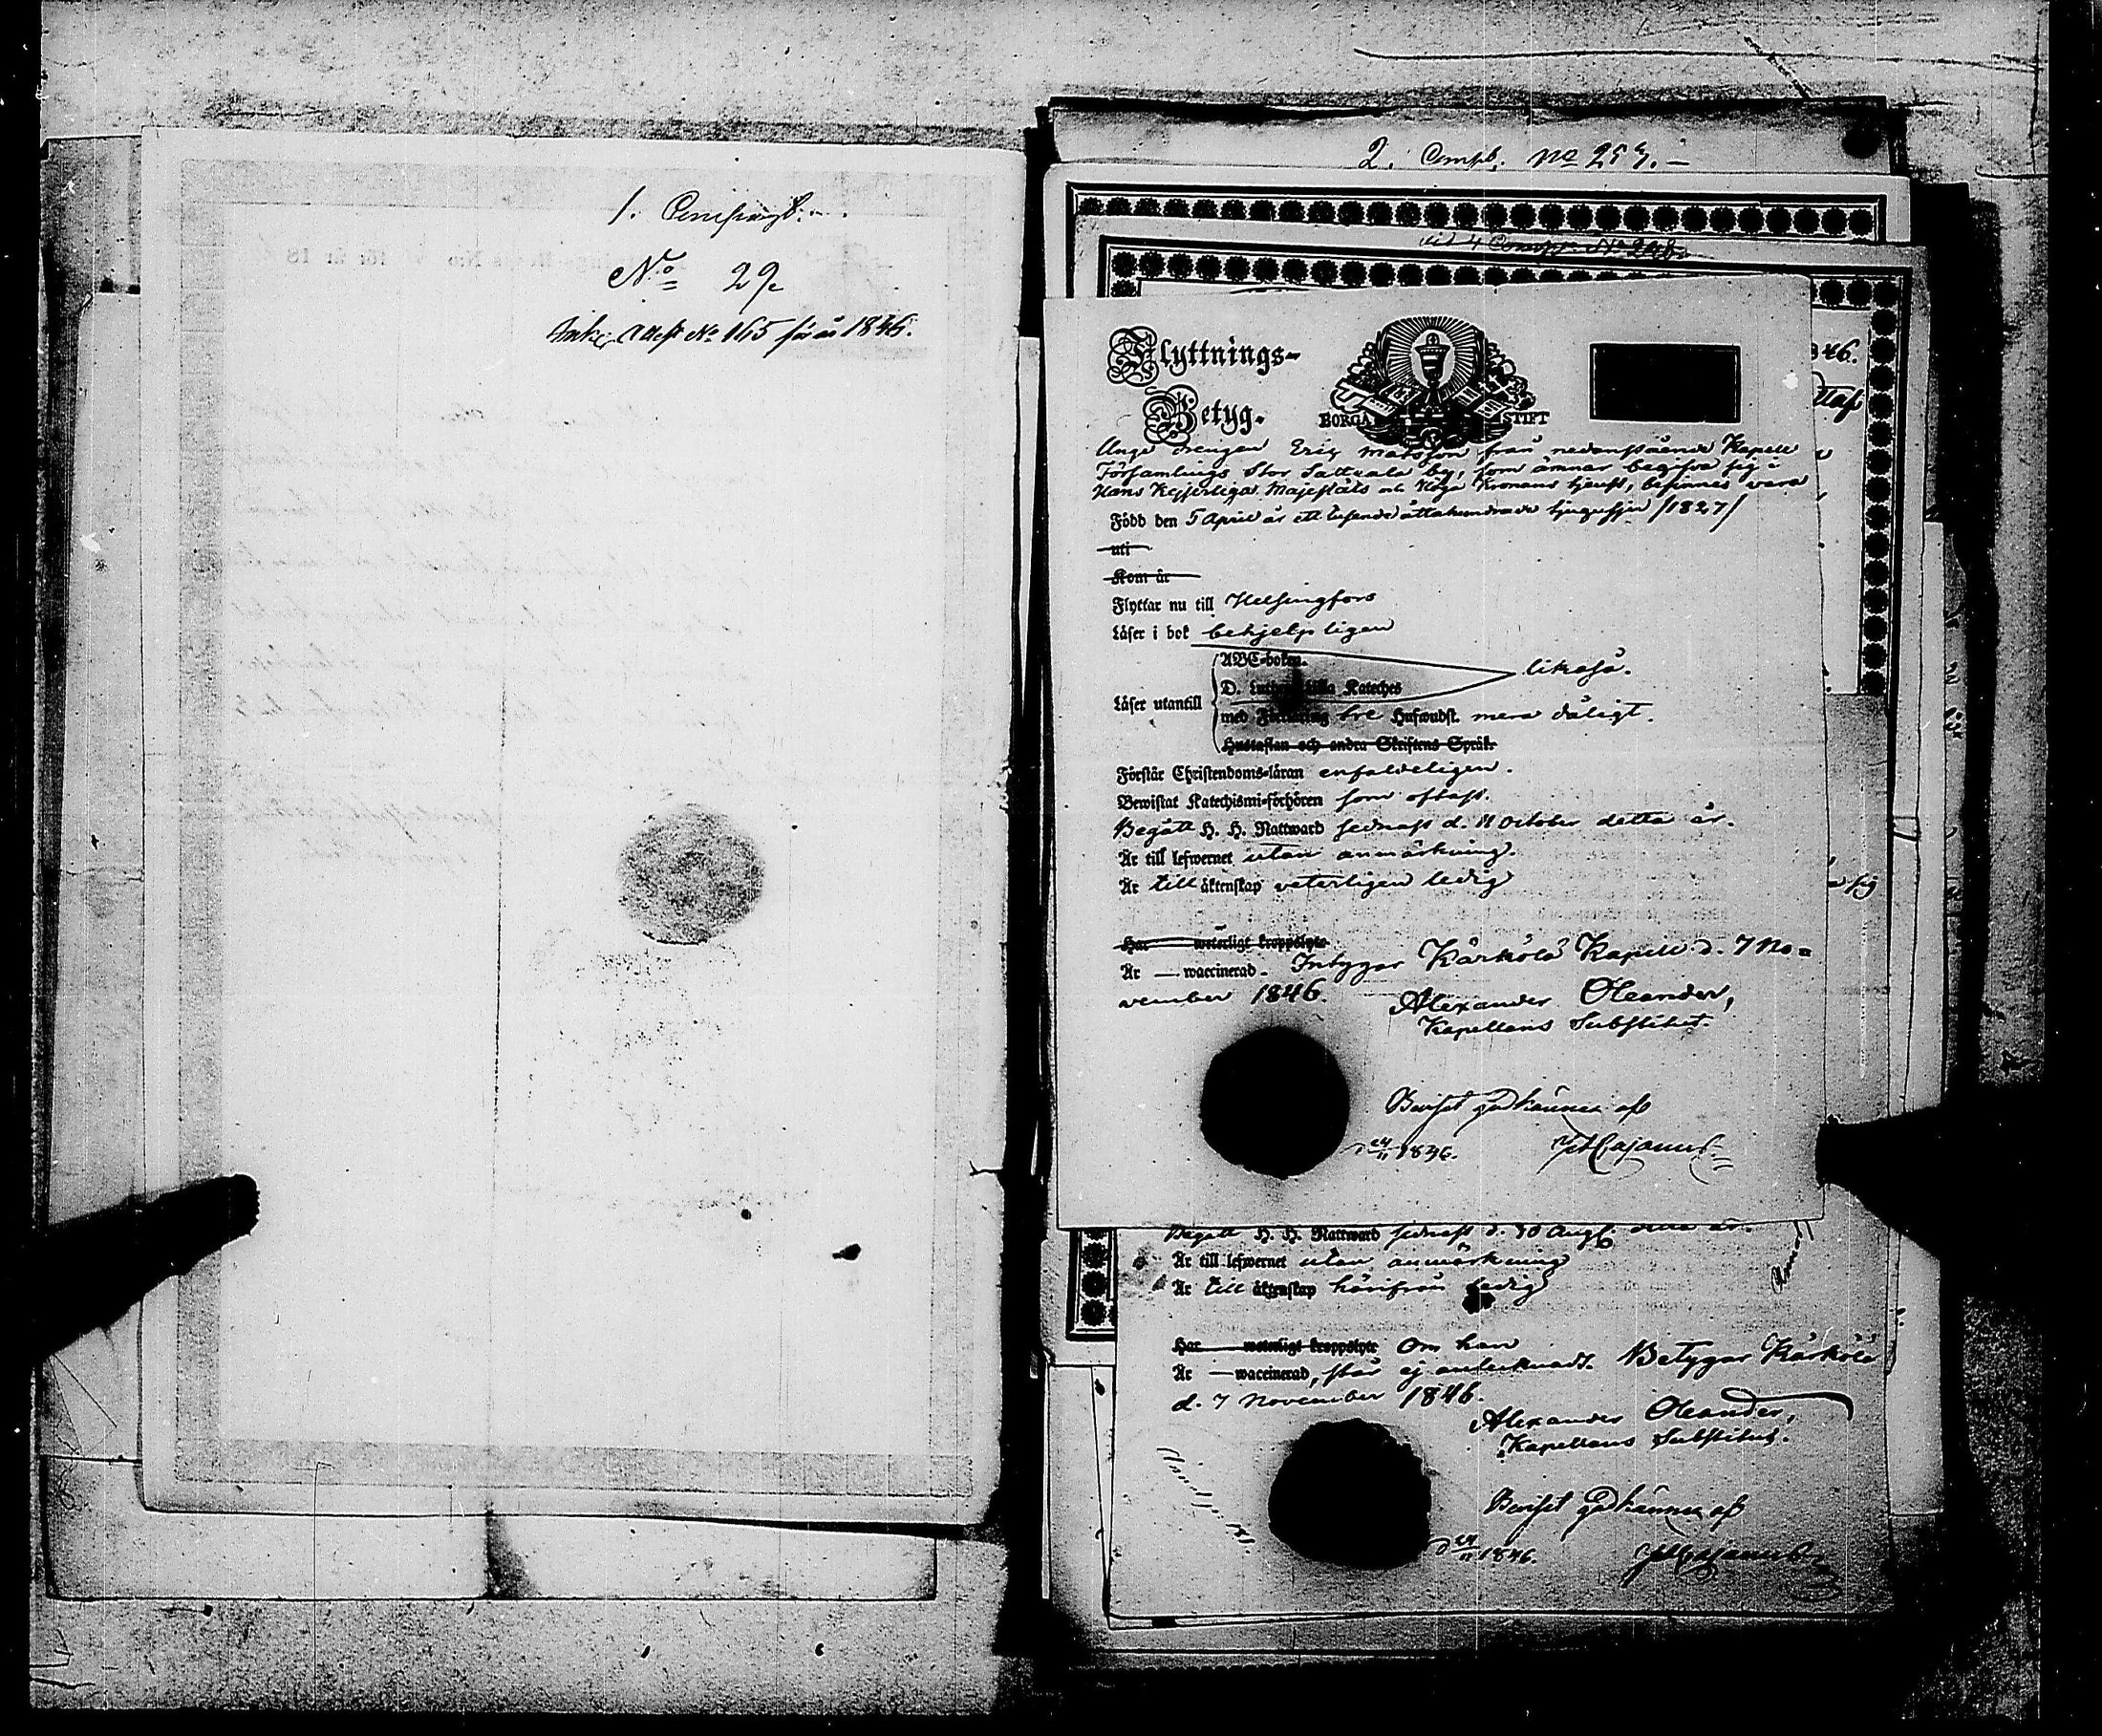 1. Compagt.
No 29
Attest No 165 för år 1846.
2. Comp. No 257.
till 4 Comp. No 248
Flyttnings-
Betyg.
BORGÅ STIFT
46.
Unge drengen Eric Matsson från nedanstående Kapell
Församlings Stor Sattiala by, som ämnar begifva sig i
Hans Kejserliga Majestäts och Höga Kronans tjenst, befinnes vara
Född den 5 April år ett tusende åttahundrade tjugusju /1827/
uti
Kom år
Flyttar nu till Helsingfors
Läser i bok behjelpligen
ABC-boken.
D. Luthers Lilla Kateches
likaså.
Läser utantill
med Förklaring tre Hufwudst. mera dåligt.
Hustaflan och andra Skriftens Språk.
Förstår Christendoms-läran enfaldeligen.
Bewistat Katechismi-förhören som oftast.
Begått H. H. Nattward sednast d. 11 October detta år.
Är till lefwernet utan anmärkning.
Är till äktenskap veterligen ledig
sig
Har weterligt kroppslyte
Är — waccinerad. Intygar Kärkölä Kapell d. 7 No=
vember 1846.
Alexander Oleander,
Kapellans Substitut.
Beviset godkännes af
1846.
Cajanus
Begått H. H. Nattward sednast d. 30 Aug. detta år.
Är till lefwernet utan anmärkning
Är till äktenskap härifrån ledig
Har weterligt kroppslyte Om han
Är — waccinerad, står ej antecknadt. Betygar Kärkölä
d. 7 November 1846.
Alexander Oleander,
Kapellans Substitut.
Beviset godkännes af
1846.
Cajanus